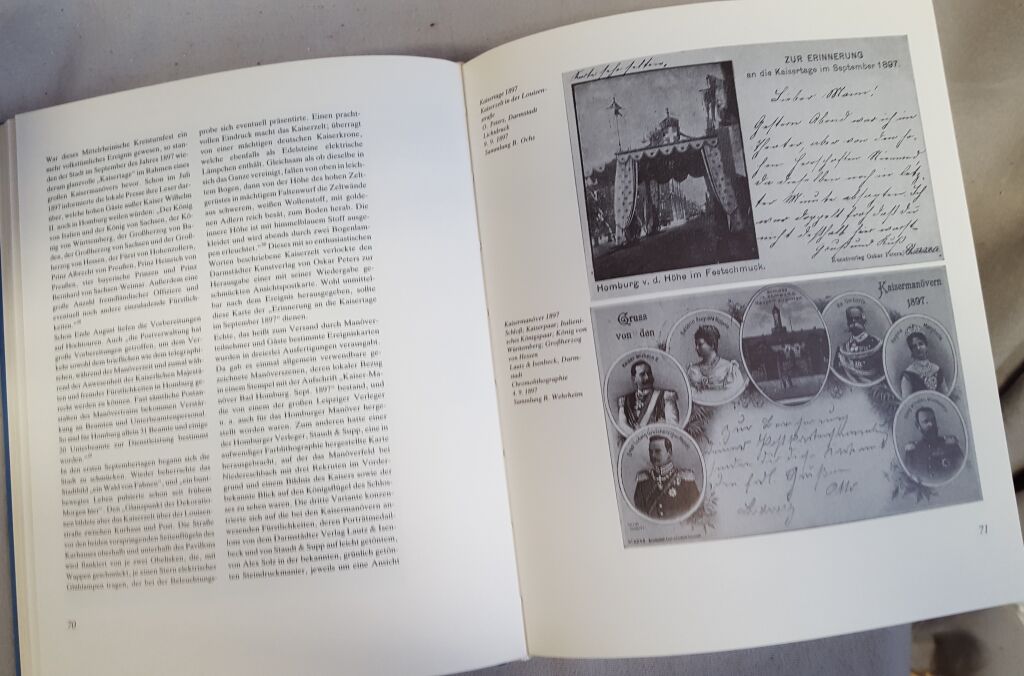 War dieses Mittelrheinische Kreisturnfest ein
mehr volkstümliches Ereignis gewesen, so stan-
den der Stadt im September des Jahres 1897 wie-
derum glanzvolle „Kaisertage“ im Rahmen eines
großen Kaisermanövers bevor. Schon im Juli
1897 informierte die lokale Presse ihre Leser dar-
über, welche hohen Gäste außer Kaiser Wilhelm
II. noch in Homburg weilen würden: „Der König
von Italien und der König von Sachsen, der Kö-
nig von Württemberg, der Großherzog von Ba-
den, der Großherzog von Sachsen und der Groß-
herzog von Hessen, der Fürst von Hohenzollern,
Prinz Albrecht von Preußen, Prinz Heinrich von
Preußen, vier bayerische Prinzen und Prinz
Bernhard von Sachsen Weimar. Außerdem eine
große Anzahl fremdländischer Offiziere und
eventuell noch andere einzuladende Fürstlich-
keiten.“
Schon Ende August liefen die Vorbereitungen
auf Hochtouren. Auch „die Postverwaltung hat
große Vorbereitungen getroffen, um dem Ver-
kehr sowohl dem brieflichen wie dem telegraphi-
schen, während der Manöverzeit und zumal wäh-
rend der Anwesenheit der Kaiserlichen Majestät
und fremder Fürstlichkeiten in Homburg ge-
recht werden zu können. Fast sämtliche Postän-
stalten des Manöverrains bekommen Verstär-
kung an Beamten und Unterbeamtenpersonal.
So sind für Homburg allein 31 Beamte und einige
20 Unterbeamte zur Dienstleistung bestimmt
worden.“
In den ersten Septembertagen begann sich die
Stadt zu schmücken. Wieder beherrschte das
Stadtbild „ein Wald von Fahnen“, und „ein bunt-
bewegtes Leben pulsierte schon seit frühem
Morgen hier“. Den „Glanzpunkt der Dekoratio-
nen bildete aber das Kaiserzelt über der Louisen-
straße zwischen Kurhaus und Post. Die Straße
vor den beiden vorspringenden Seitenflügeln des
Kurhauses oberhalb und unterhalb des Pavillons
wird flankiert von je zwei Obelisken, die, mit
Wappen geschmückt, je einen Stern elektrisches
Glühlampen tragen, der bei der Beleuchtungs-
70
probe sich eventuell präsentirte. Einen pracht-
vollen Eindruck macht das Kaiserzelt; überragt
von einer mächtigen deutschen Kaiserkrone,
welche ebenfalls als Edelsteine elektrische
Lämpchen enthält. Gleichsam als ob dieselbe in
sich das Ganze vereinigt, fallen von oben in leich-
ten Bogen, dann von der Höhe des hohen Zelt-
gerüstes in mächtigem Faltenwurf die Zeltwände
aus schwerem, weißen Wollenstoff, mit golde-
nen Adlern reich besät, zum Boden herab. Die
innere Höhe ist mit himmelblauem Stoff ausge-
kleidet und wird abends durch zwei Bogenlam-
pen erleuchtet.“ Dieses mit so enthusiastischen
Worten beschriebene Kaiserzelt verlockte den
Darmstädter Kunstverlag von Oskar Peters zur
Herausgabe einer mit seiner Wiedergabe ge-
schmückten Ansichtspostkarte. Wohl unmittel-
bar nach dem Ereignis herausgegeben, sollte
diese Karte der „Erinnerung an die Kaisertage
im September 1897“ dienen.
Echte, das heißt zum Versand durch Manöver-
teilnehmer und Gäste bestimmte Ereigniskarten
wurden in dreierlei Ausfertigungen verausgabt.
Da gab es einmal allgemein verwendbare ge-
zeichnete Manöverszenen, deren lokaler Bezug
im Stempel mit der Aufschrift „Kaiser-Ma-
növer Bad Homburg. Sept. 1897“ bestand, und
die von einem der großen Leipziger Verleger
u. a. auch für das Homburger Manöver herge-
stellt worden waren. Zum anderen hatte einer
der Homburger Verleger, Staudt & Supp, eine in
aufwendiger Farblithografie hergestellte Karte
herausgebracht, auf der das Manöverfeld bei
Niedereschbach mit drei Rekruten im Vorder-
grund und einem Bildnis des Kaisers sowie der
bekannte Blick auf den Königsflügel des Schlos-
ses zu sehen waren. Die dritte Variante konzen-
trierte sich auf die bei den Kaisermanövern an-
wesenden Fürstlichkeiten, deren Porträtmedail-
lons vom Darmstädter Verlag Lautz & Isen-
beck und von Staudt & Supp auf leicht getöntem,
von Alex Solz in der bekannten, grünlich getön-
ten Steindruckmanier, jeweils um eine Ansicht
Kaisertage 1897
Kaiserzelt in der Louisen-
straße
O. Peters, Darmstadt
Lichtdruck
9. 9. 1897
Sammlung B. Ochs
ZUR ERINNERUNG
an die Kaisertage im September 1897.
Lieber Mann!
Gestern Abend war ich im
Theater, aber von den ho-
hen Herrschaften Niemand
da dieselben noch in letz-
ter Minute absagten. Ich
war doppelt froh daß du
nicht deshalb hier warst.
Gruß und Kuß
Kunstverlag Oskar Peters,
Homburg v. d. Höhe im Festschmuck.
Kaisermanöver 1897
Schloß, Kaiserpaar, Italieni-
sches Königspaar, König von
Württemberg, Großherzog
von Hessen
Lautz & Isenbeck, Darm-
stadt
Chromolithographie
4. 9. 1897
Sammlung B. Wehrheim
Gruss
von den
Kaisermanövern
1897.
Otto
71